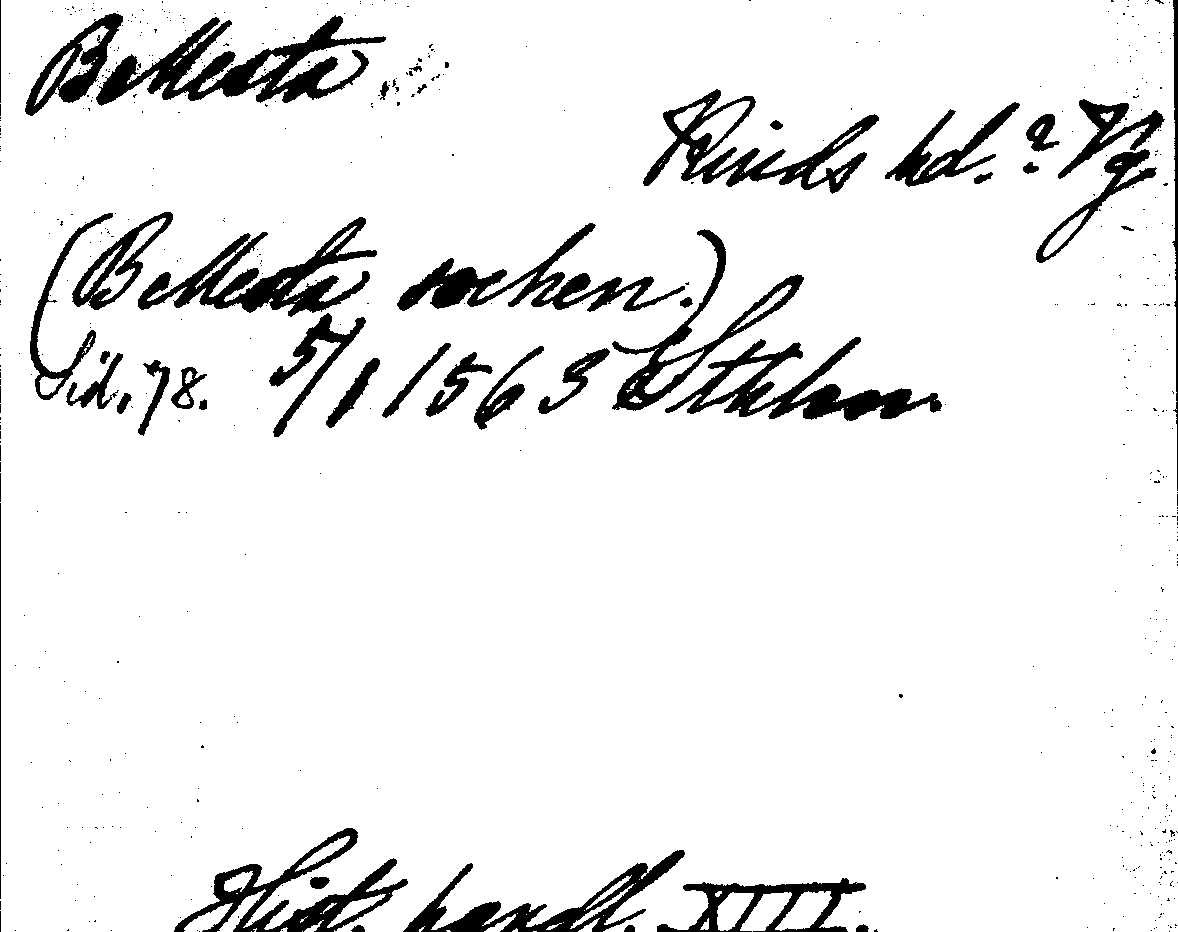 Bellesta
Kinds hd.? Vg
(Bellesta sochen.)
Sid. 78. 5/1 1563 Sthlm.
Hist. handl. XIII.